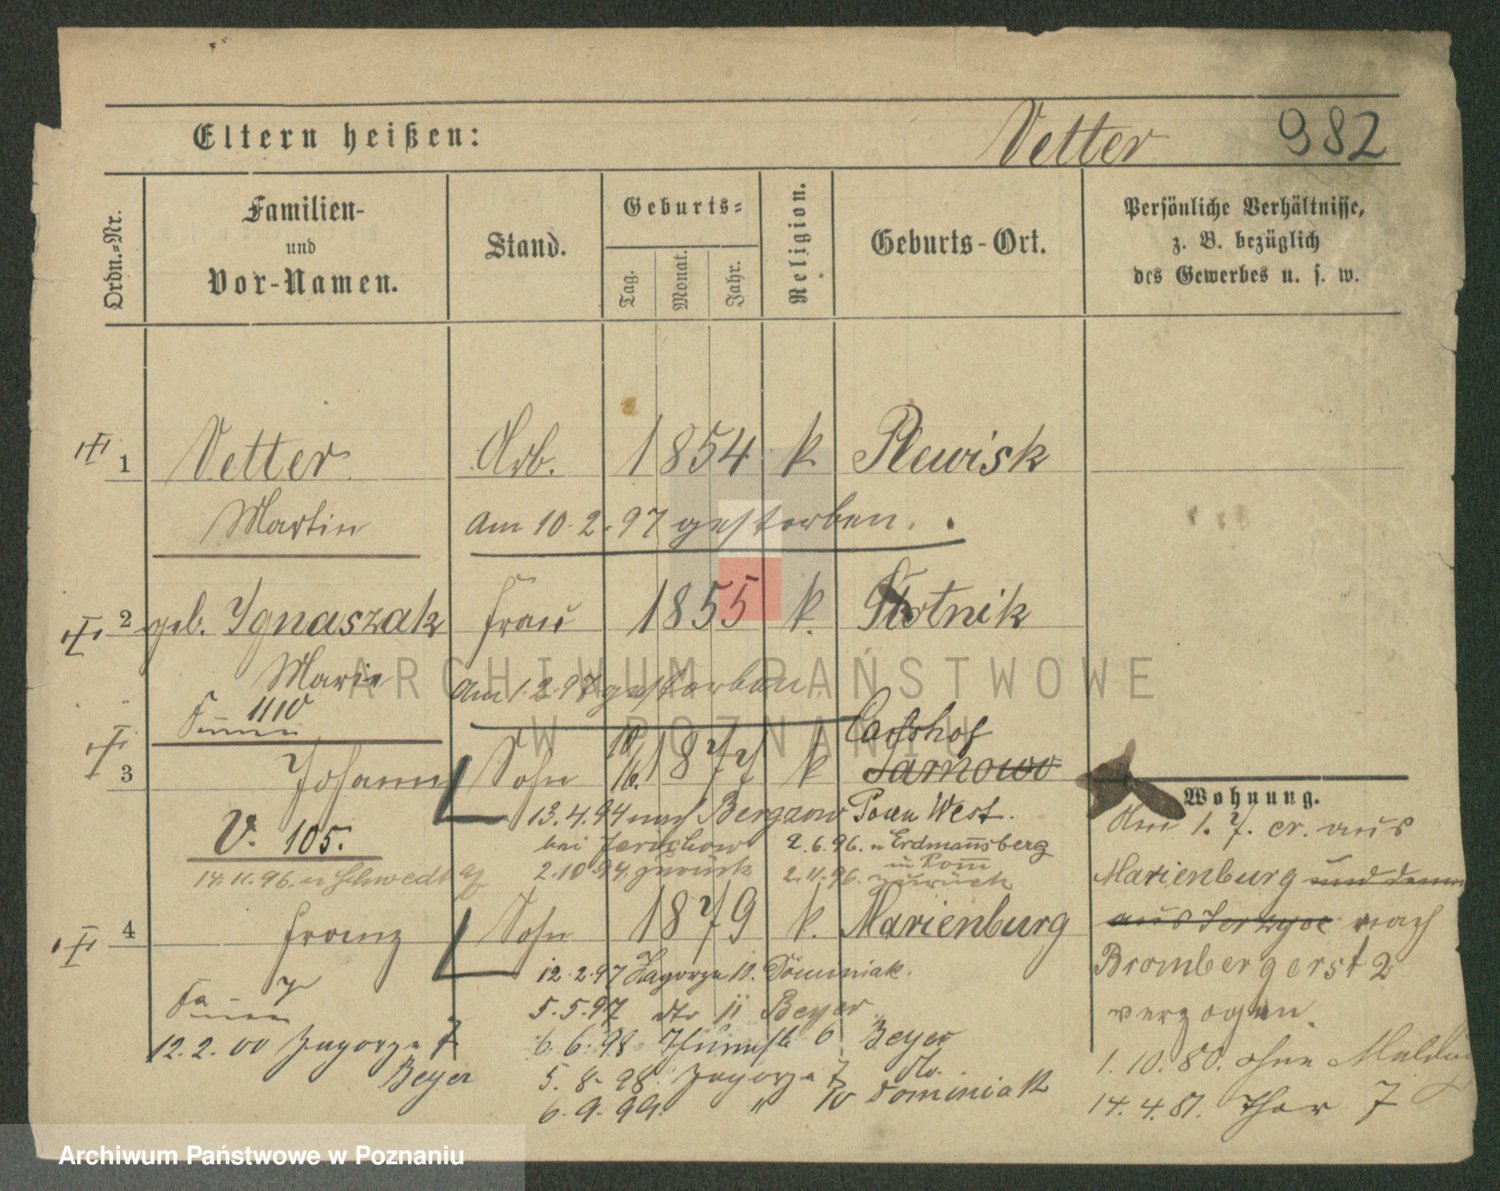 Eltern heißen: Vetter 982
Ordn.-Nr.
Familien-
und
Vor-Namen.
Stand.
Geburts-
Tag.
Monat.
Jahr.
Religion.
Geburts-Ort.
Persönliche Verhältnisse,
z. B. bezüglich
des Gewerbes u. s. w.
1 Vetter Arb. 1854 k Plewisk
Martin am 10.2.97 gestorben.
2 geb. Ignaszak Frau 1855 k. Zlotnik
Marie am 1.2.97 gestorben
1110
3 Johann Sohn 1877 k Carlshof
Sarnowo
V. 105.
13.4.94 nach Bergzow
bei Jerichow
2.10.94. zurück
Posen West.
2.6.96. n Erdmannsberg
2.11.96. zurück
14.11.96. n Schwedt
4 Franz Sohn 1879 k. Marienburg
12.2.97 Zagorze 10. Dominiak.
5.5.97 dto 11 Beyer
6.6.98 6 Beyer
5.8.98. Zagorze 7 do.
6.9.99. " 10 Dominiak
12.2.00 Zagorze 7
Beyer
Wohnung.
Am 1.7. cr. aus
Marienburg und dann
aus nach
Brombergerst 2
verzogen.
1.10.80. ohne Meldung
14.4.81. Thor 7
ARCHIWUM PAŃSTWOWE
W POZNANIU
Archiwum Państwowe w Poznaniu